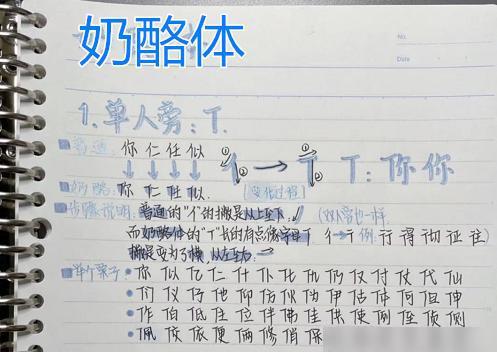 奶酪体
No.
Date
1.单人旁:T.
普通: 你 仁 任 似
① ② → ① ② T:你 你
奶酪: 你 仁 任 似. (变化过程)
步骤说明: 普通的"亻"的撇是从上至下↓ (双人旁也一样
而奶酪体的"T"书的有点像字母T 彳→ 例:行 得 彻 征 往)
撇是变为了横,从左至右.→
举个栗子: • 你 似 亿 仁 什 仆 化 仇 仍 仅 付 仗 代 仙
• 们 仪 仔 他 仰 仿 伙 伪 伊 估 体 何 但 伸
• 作 伯 低 住 位 伴 佛 佳 供 使 例 侄 侦 侧
• 佩 侯 依 便 俩 修 俏 保